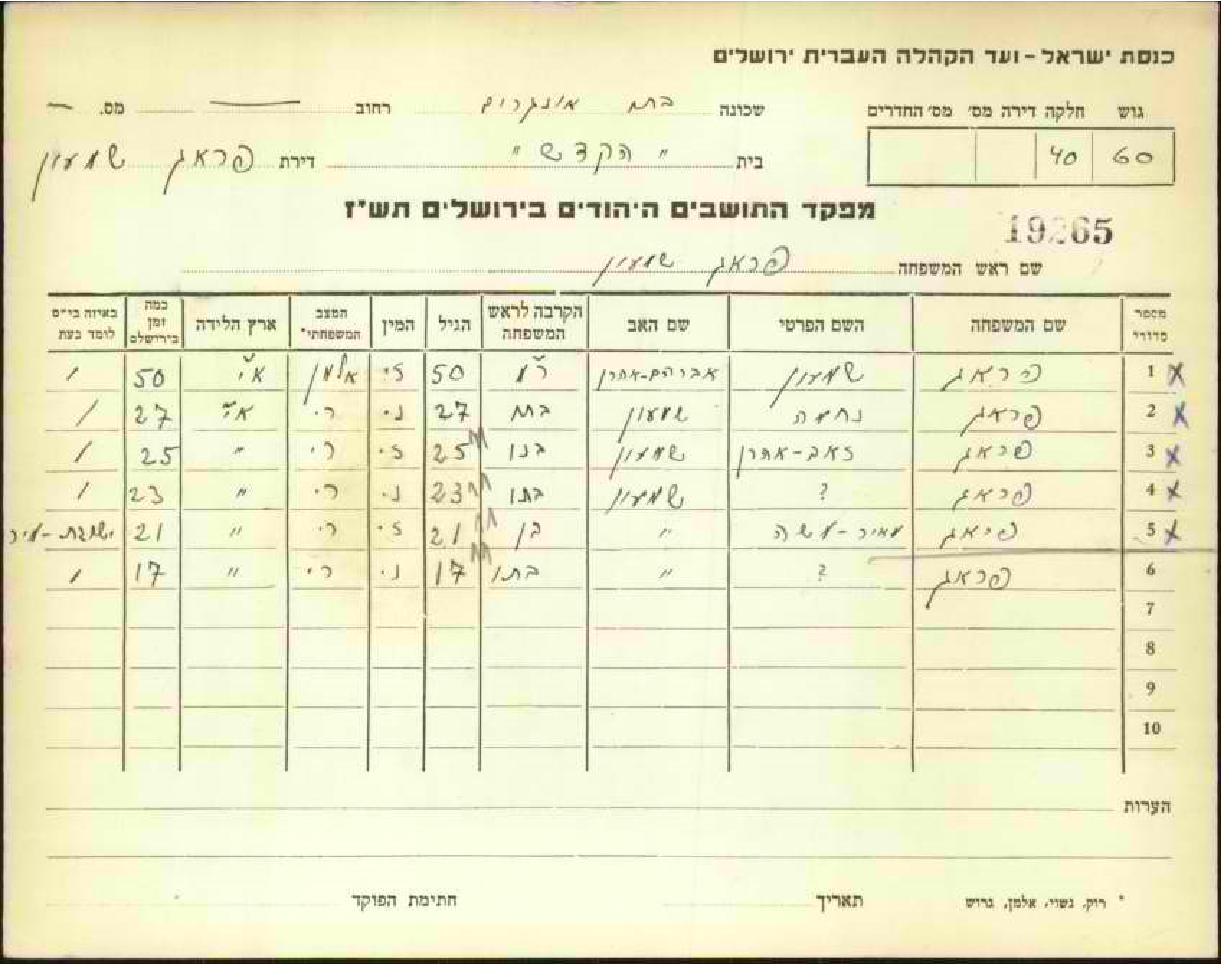 כנסת ישראל - ועד הקהלה העברית ירושלים
גוש חלקה דירה מס' מס' החדרים
60 40
שכונה בתי אונגרין רחוב — מס. —
בית "הקדש" דירת פראג שמעון
מפקד התושבים היהודים בירושלים תש"ז
19265
שם ראש המשפחה פראג שמעון
מספר סדורי שם המשפחה השם הפרטי שם האב הקרבה לראש המשפחה הגיל המין המצב המשפחתי* ארץ הלידה כמה זמן בירושלם באיזה בי"ס לומד כעת
1 X פראג שמעון אברהם-אהרן ר"מ 50 ז. אלמן א"י 50 /
2 X פראג נחמה שמעון בת 27 נ. ר. א"י 27 /
3 X פראג זאב-אהרן שמעון בנו 25 ז. ר. " 25 /
4 X פראג ? שמעון בתו 23 נ. ר. " 23 /
5 X פראג מאיר-משה " בן 21 ז. ר. " 21 ישיבת-
6 פראג ? " בתו 17 נ. ר. " 17 /
7
8
9
10
הערות
* רוק, נשוי, אלמן, גרוש תאריך חתימת הפוקד